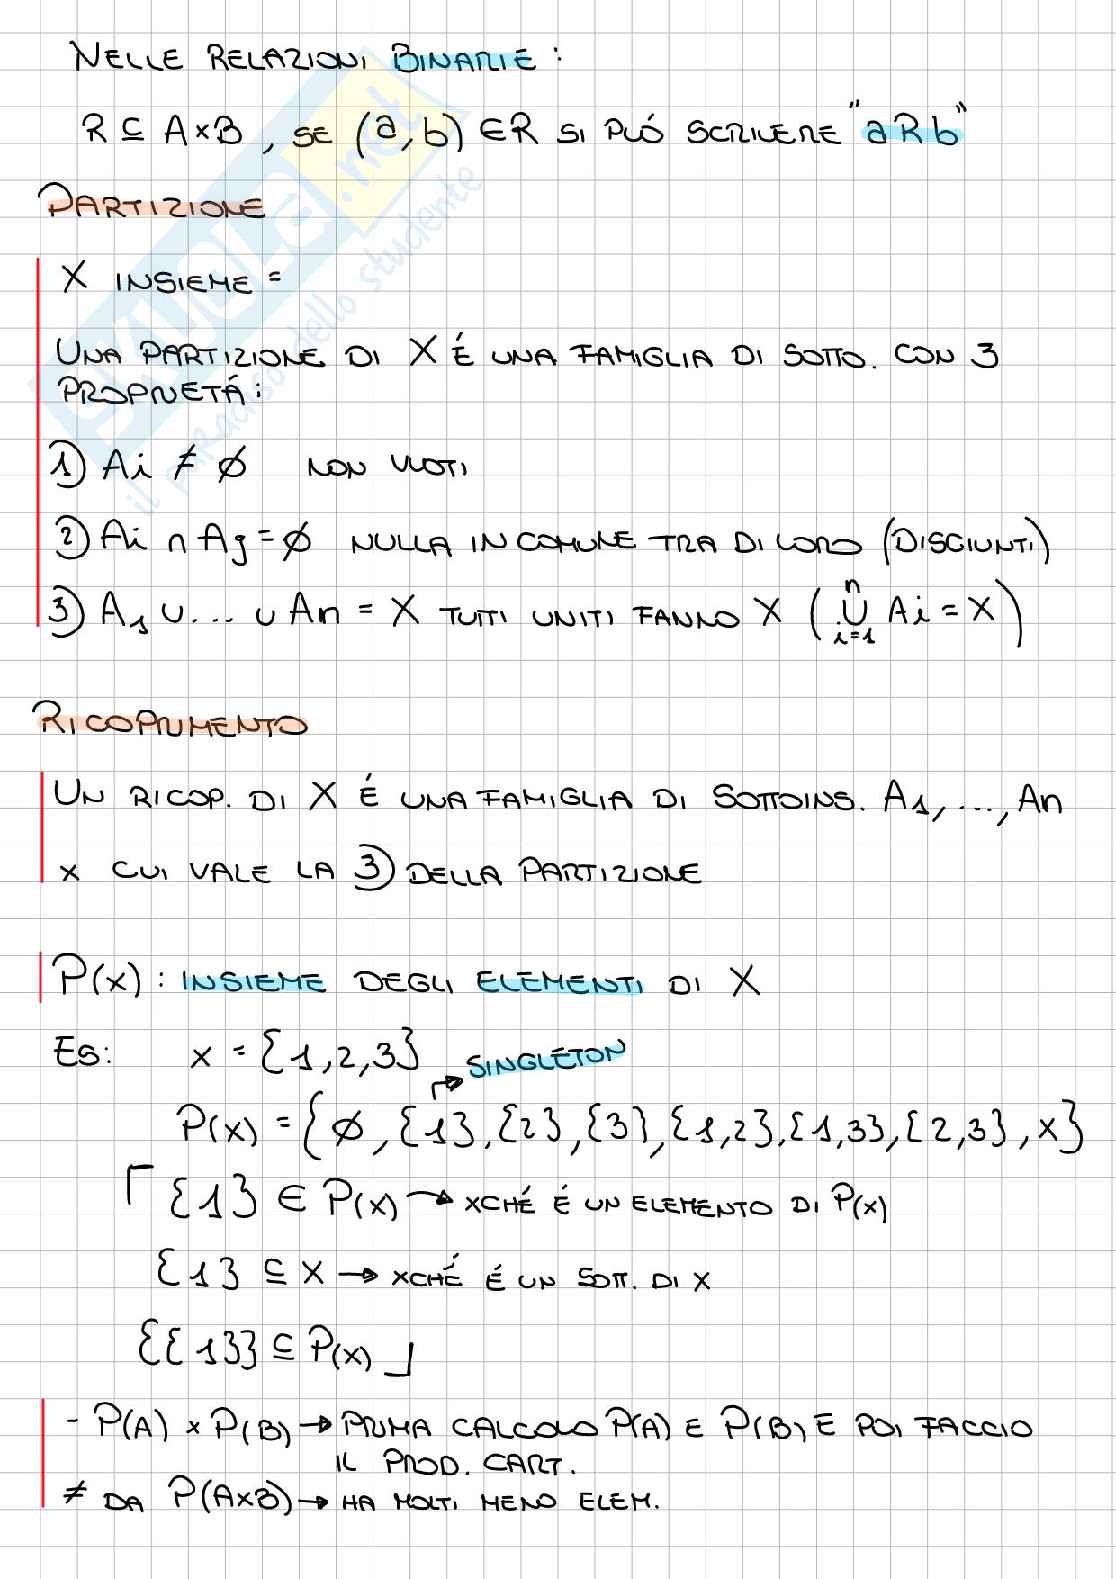 NELLE RELAZIONI BINARIE :
R ⊆ A×B , SE (a,b) ∈R SI PUÓ SCRIVERE "aRb"
PARTIZIONE
X INSIEME =
UNA PARTIZIONE DI X É UNA FAMIGLIA DI SOTTO. CON 3
PROPRIETÁ:
1) Ai ≠ ∅ NON VUOTI
2) Ai ∩ Aj = ∅ NULLA IN COMUNE TRA DI LORO (DISGIUNTI)
3) A1 ∪ ... ∪ An = X TUTTI UNITI FANNO X (⋃ i=1 n Ai = X)
RICOPRIMENTO
UN RICOP. DI X É UNA FAMIGLIA DI SOTTOINS. A1, ..., An
x CUI VALE LA 3) DELLA PARTIZIONE
P(x) : INSIEME DEGLI ELEMENTI DI X
ES: x = {1,2,3} → SINGLETON
P(x) = {∅, {1}, {2}, {3}, {1,2}, {1,3}, {2,3}, x}
⌈ {1} ∈ P(x) → XCHÉ É UN ELEMENTO DI P(x)
{1} ⊆ X → XCHÉ É UN SOTT. DI X
{{1}} ⊆ P(x) ⌋
- P(A) × P(B) → PRIMA CALCOLO P(A) E P(B) E POI FACCIO
IL PROD. CART.
≠ DA P(A×B) → HA MOLTI MENO ELEM.
SKUOLA.net
il paradiso dello studente